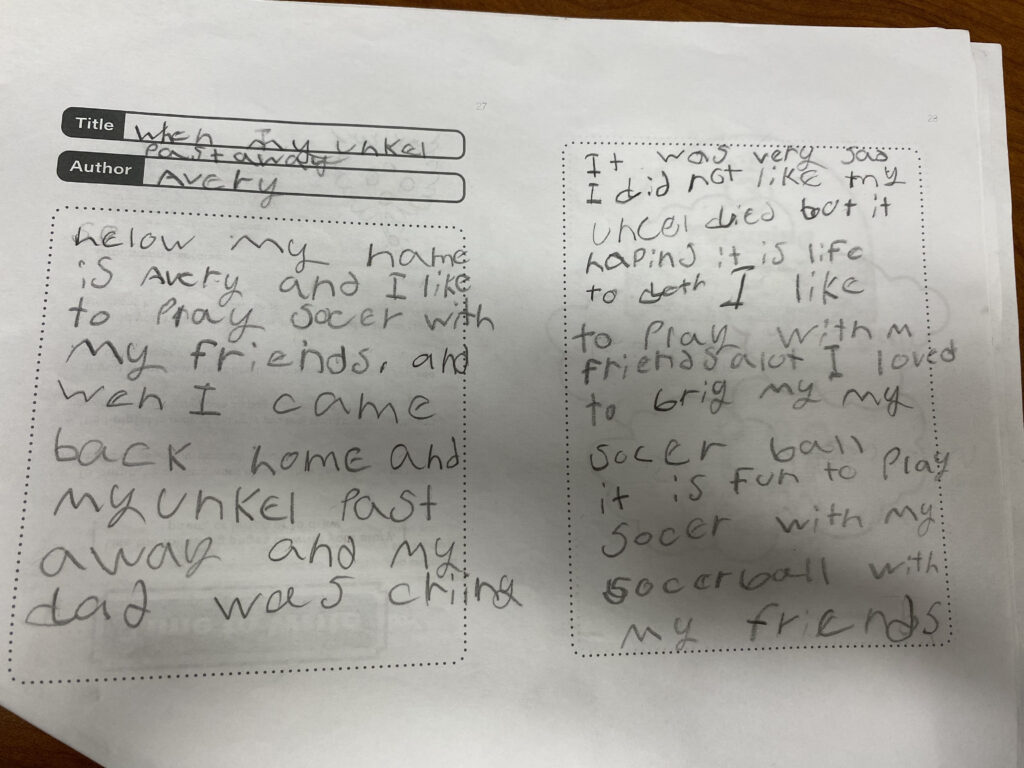 27
Title
when my unkel
past away
Author
Avery
helow my name
is Avery and I like
to Play socer with
my friends, and
wen I came
back home and
my unkel Past
away and my
dad was criing
28
It was very sad
I did not like my
uncel died but it
hapind it is life
to deth I like
to Play with m
friends alot I loved
to brig my my
socer ball
it is fun to Play
socer with my
socerball with
my friends